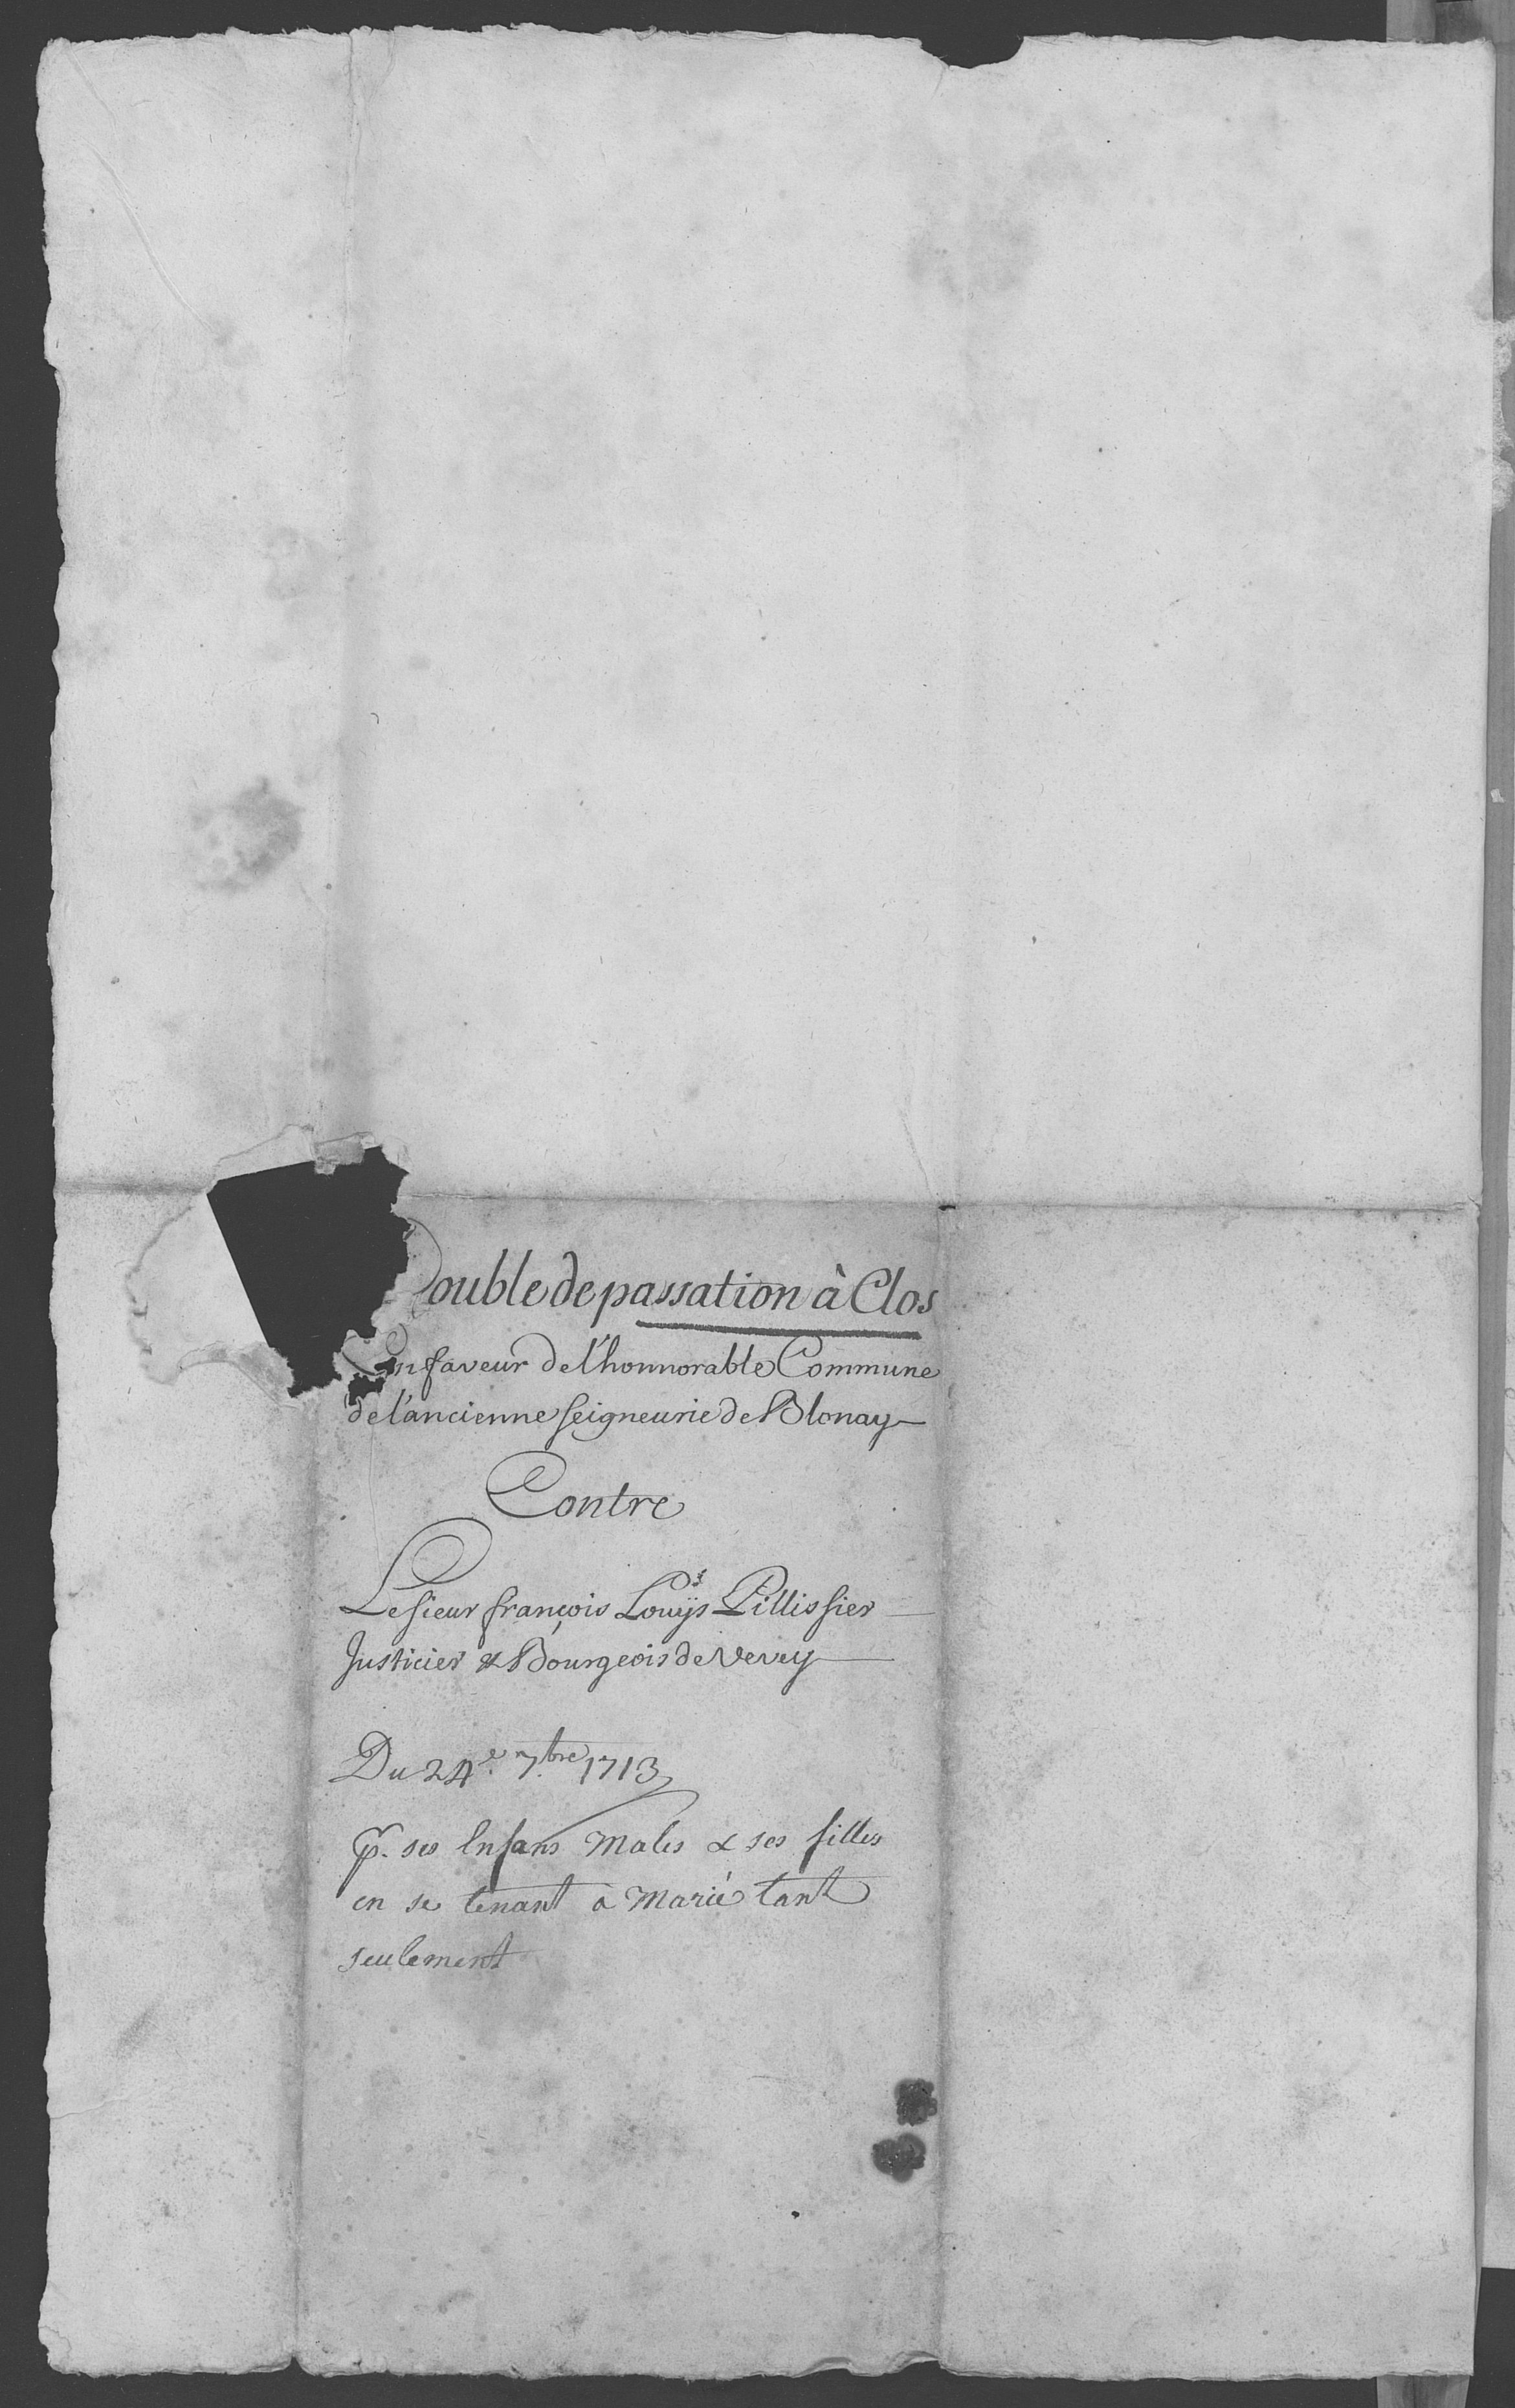 Double de passation à Clos
En faveur de l'honnorable Commune
de l'ancienne seigneurie de Blonay
Contre
Le sieur françois Louÿs Pillissier
Justicier & Bourgeois de Vevey
Du 24e. 7.bre 1713
p. ses Enfans Males & ses filles
en se tenant à Marié tant
seulement